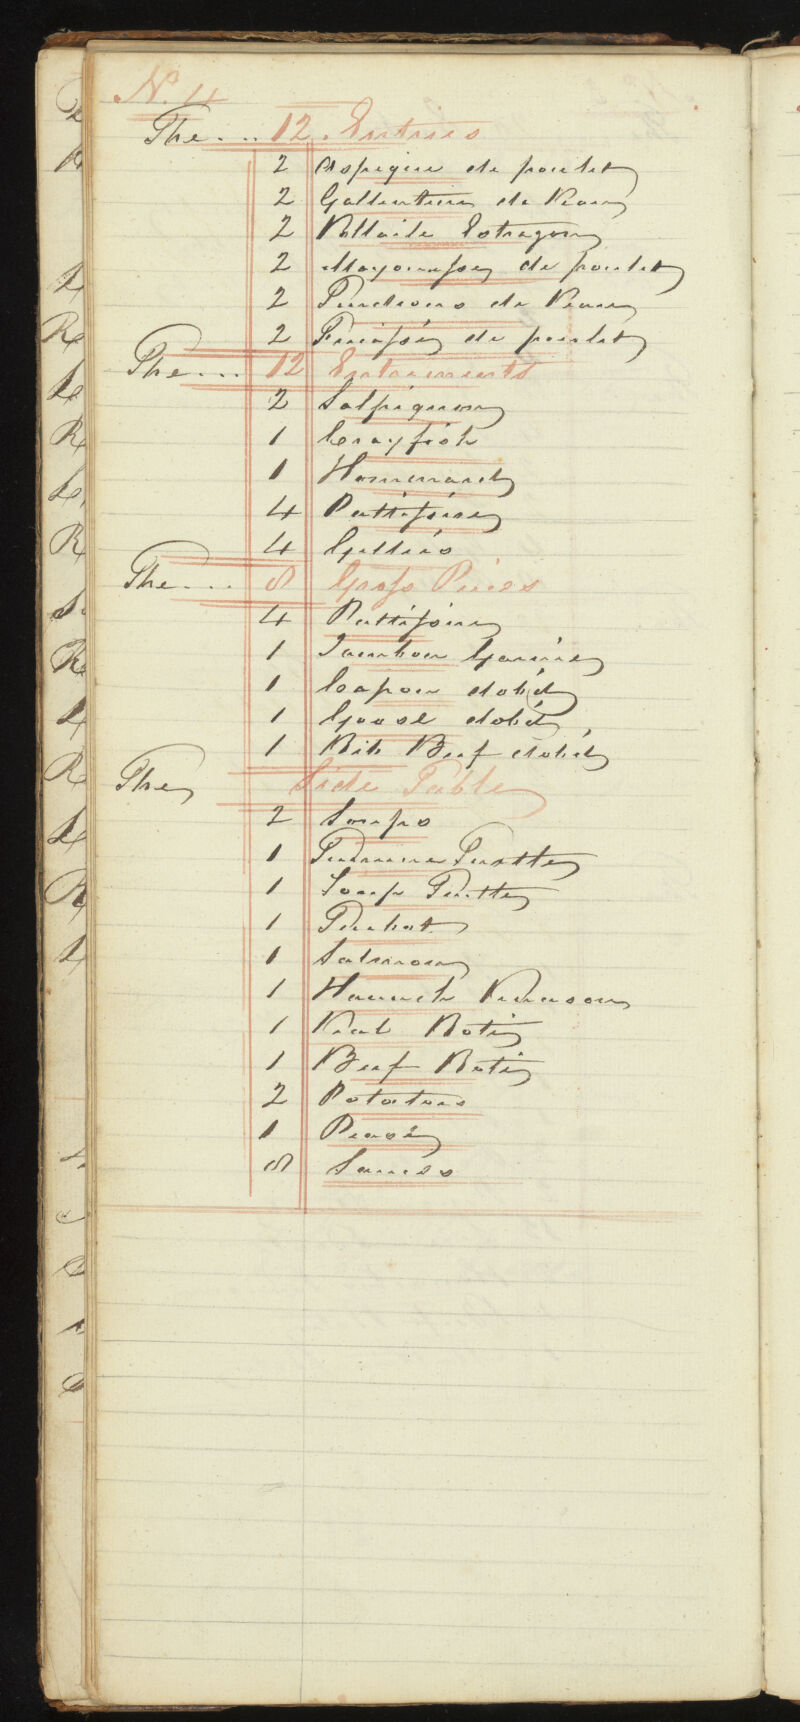 N. 4
The ... 12. Entries
2 Aspique de poulet
2 Gallentine de Veau
2 Vollaile Estragon
2 Mayonnesse de poulet
2 Tendrons de Veau
2 Fricassé de poulet
The ... 12 Entrements
2 Salpignon
1 Crayfish
1 Hommard
4 Pattissire
4 Gelliés
The ... 8 Gross Pices
4 Pattissire
1 Jambon Garnie
1 Capon dobéd
1 Goose dobéd
1 Rib Beef dobéd
The Side Table
2 Soups
1 Terrine Turttle
1 Soup Turttle
1 Turbot
1 Salmon
1 Haunch Venason
1 Veal Roti
1 Beef Roti
2 Potatoes
1 Peasé
8 Sauces